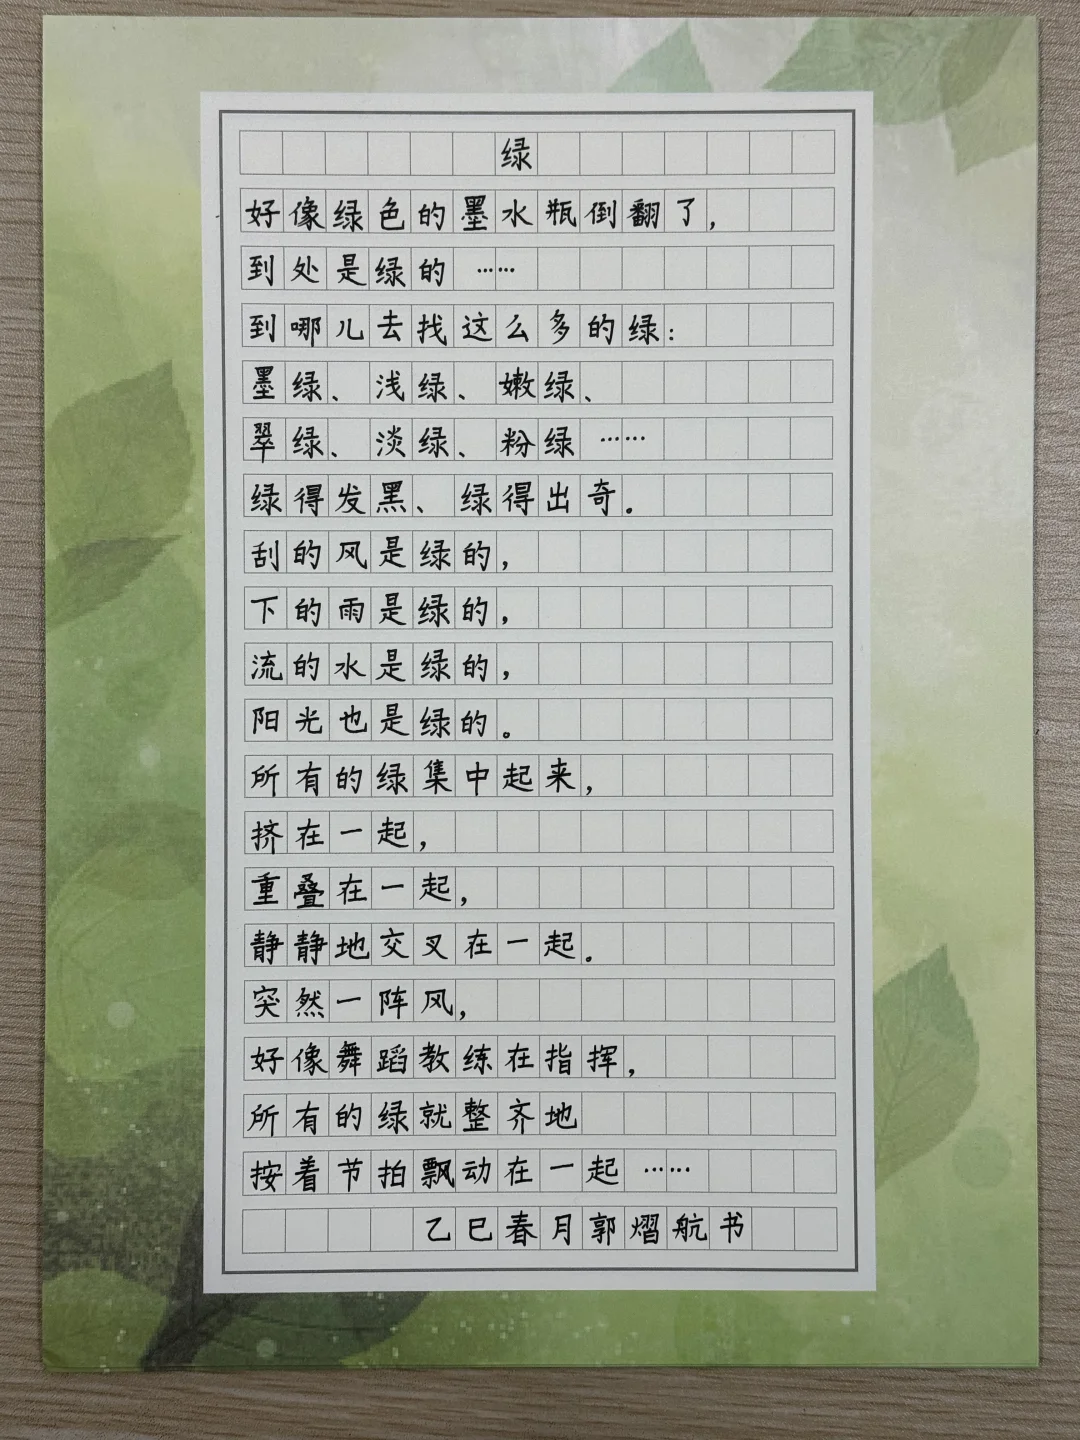 绿
好像绿色的墨水瓶倒翻了，
到处是绿的……
到哪儿去找这么多的绿：
墨绿、浅绿、嫩绿、
翠绿、淡绿、粉绿……
绿得发黑、绿得出奇。
刮的风是绿的，
下的雨是绿的，
流的水是绿的，
阳光也是绿的。
所有的绿集中起来，
挤在一起，
重叠在一起，
静静地交叉在一起。
突然一阵风，
好像舞蹈教练在指挥，
所有的绿就整齐地
按着节拍飘动在一起……
乙巳春月郭熠航书